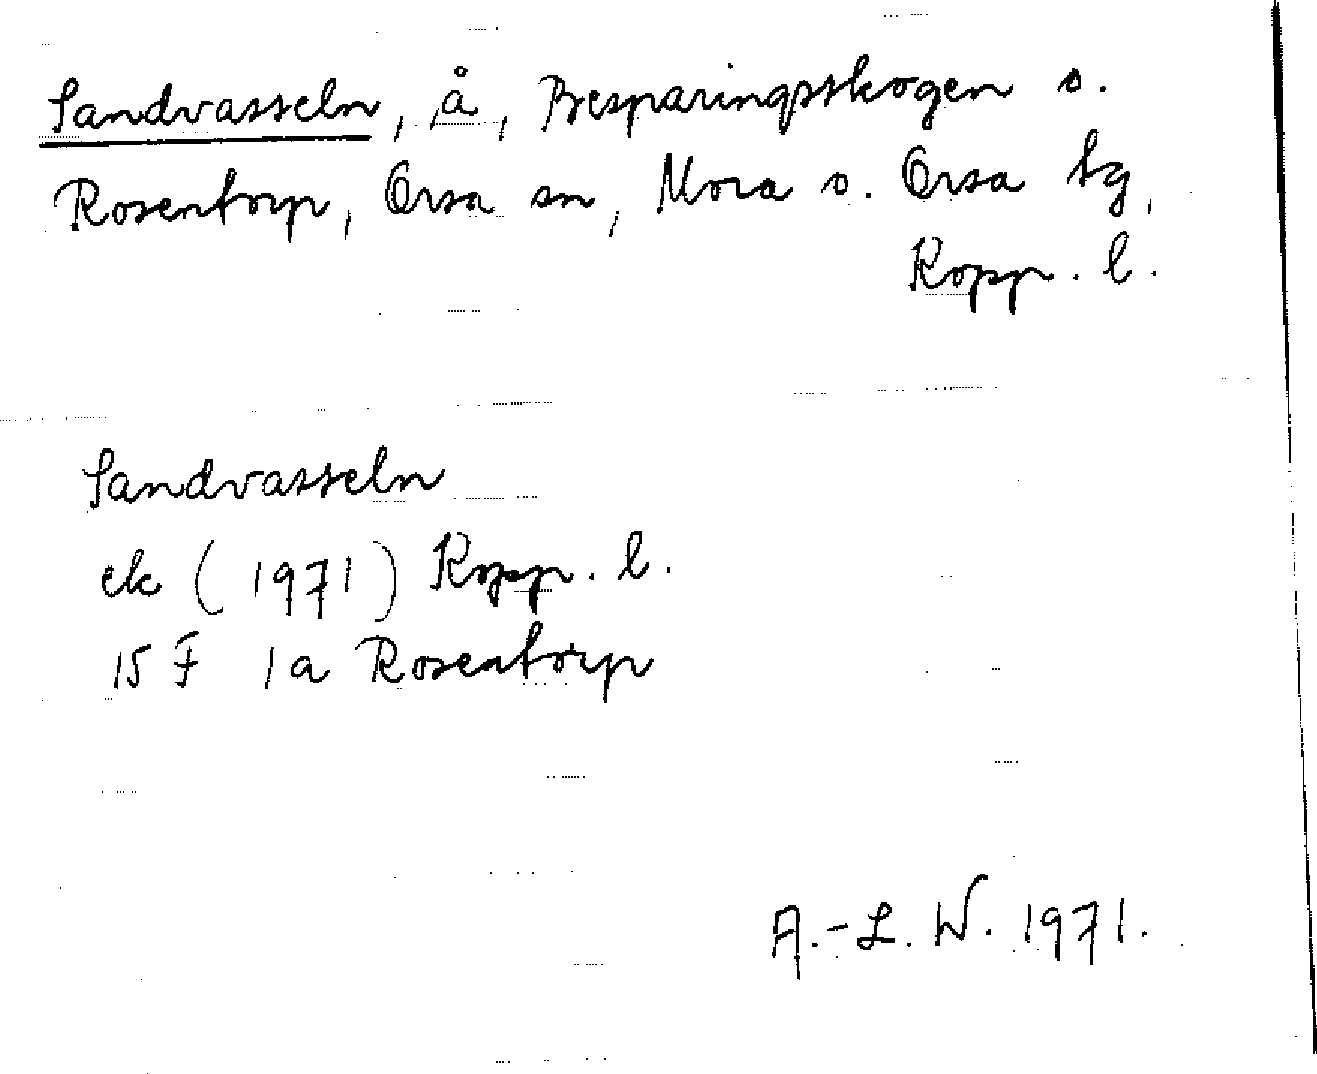 Sandvasseln, å, Besparingsskogen o.
Rosentorp, Orsa sn, Mora o. Orsa tg,
Kopp. l.
Sandvasseln
ek (1971) Kopp. l.
15 F 1a Rosentorp
A.-L. W. 1971.